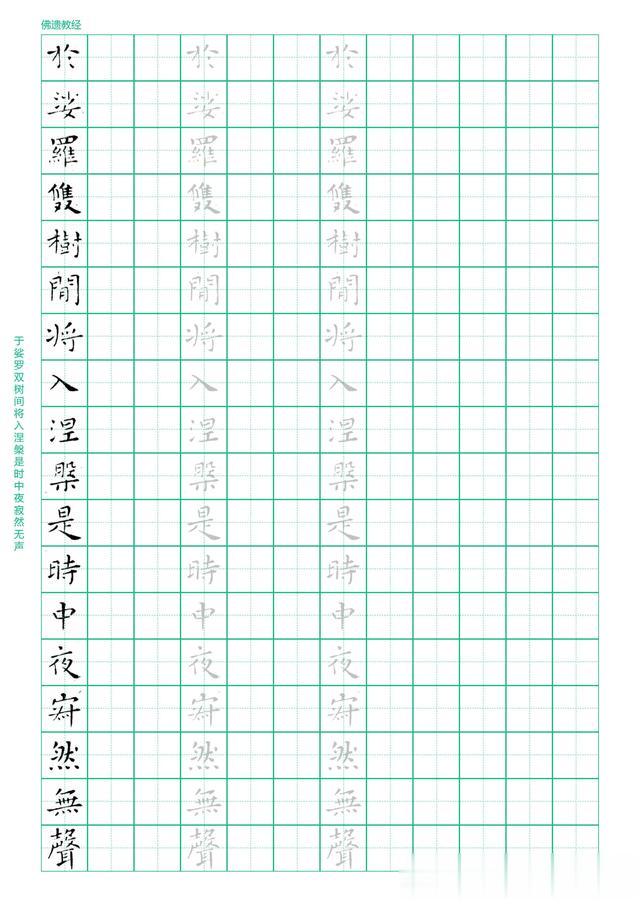 佛遗教经
于娑罗双树间将入涅槃是时中夜寂然无声
於 於 於
娑 娑 娑
羅 羅 羅
雙 雙 雙
樹 樹 樹
間 間 間
将 将 将
入 入 入
涅 涅 涅
槃 槃 槃
是 是 是
時 時 時
中 中 中
夜 夜 夜
寂 寂 寂
然 然 然
無 無 無
聲 聲 聲